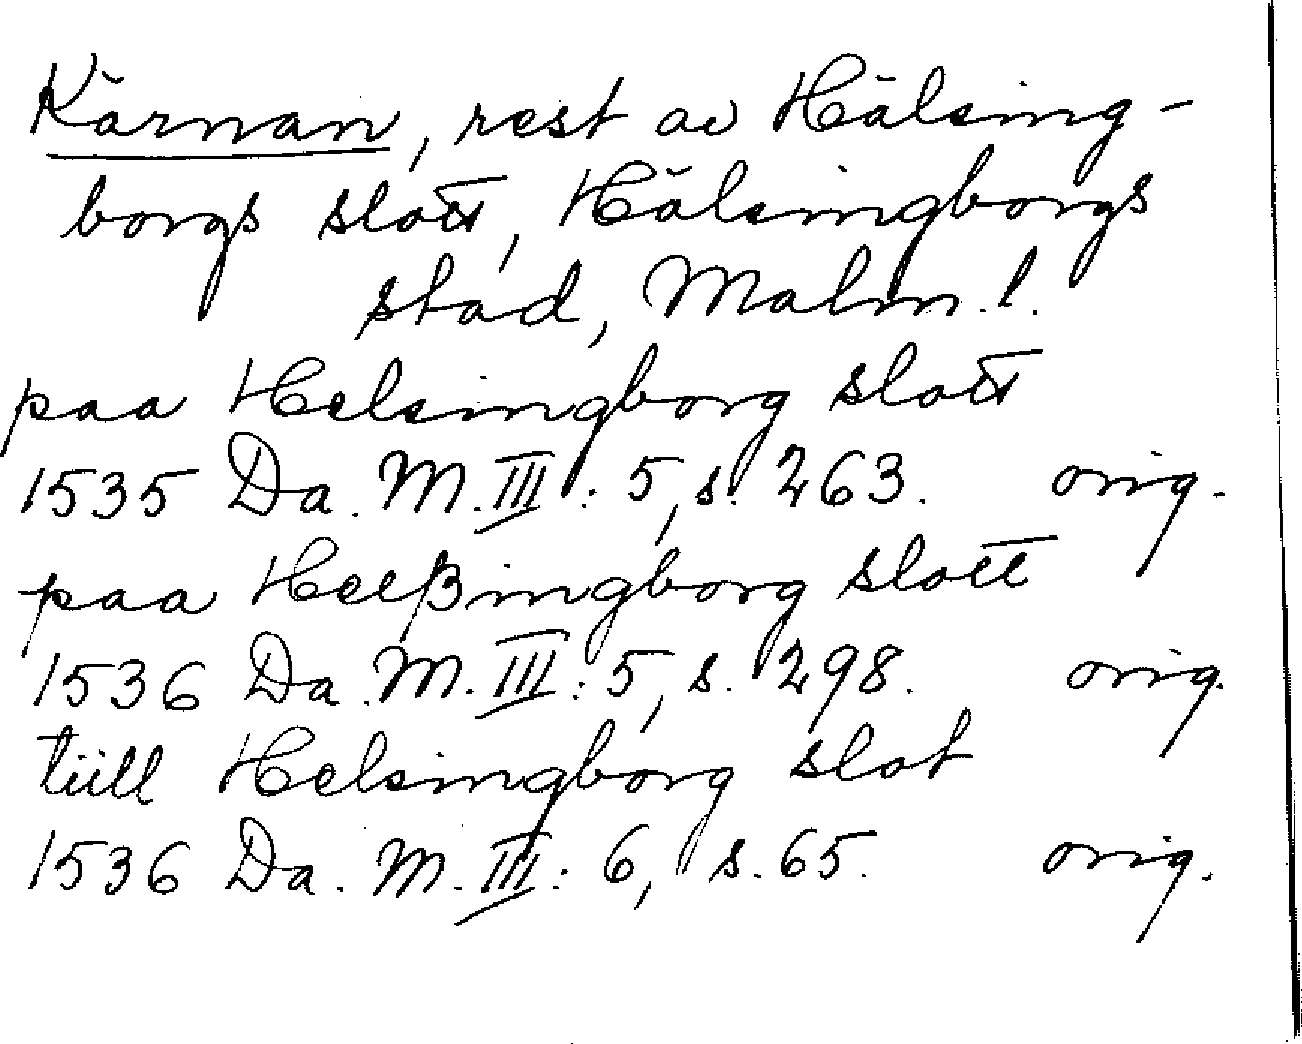 Kärnan, rest av Hälsing-
borgs slott, Hälsingborgs
stad, Malm. l.
paa Helsingborg slott
1535 Da. M. III: 5, s. 263. orig.
paa Heelßingborg slott
1536 Da. M. III: 5, s. 298. orig.
tiill Helsingborg slot
1536 Da. M. III: 6, s. 65. orig.